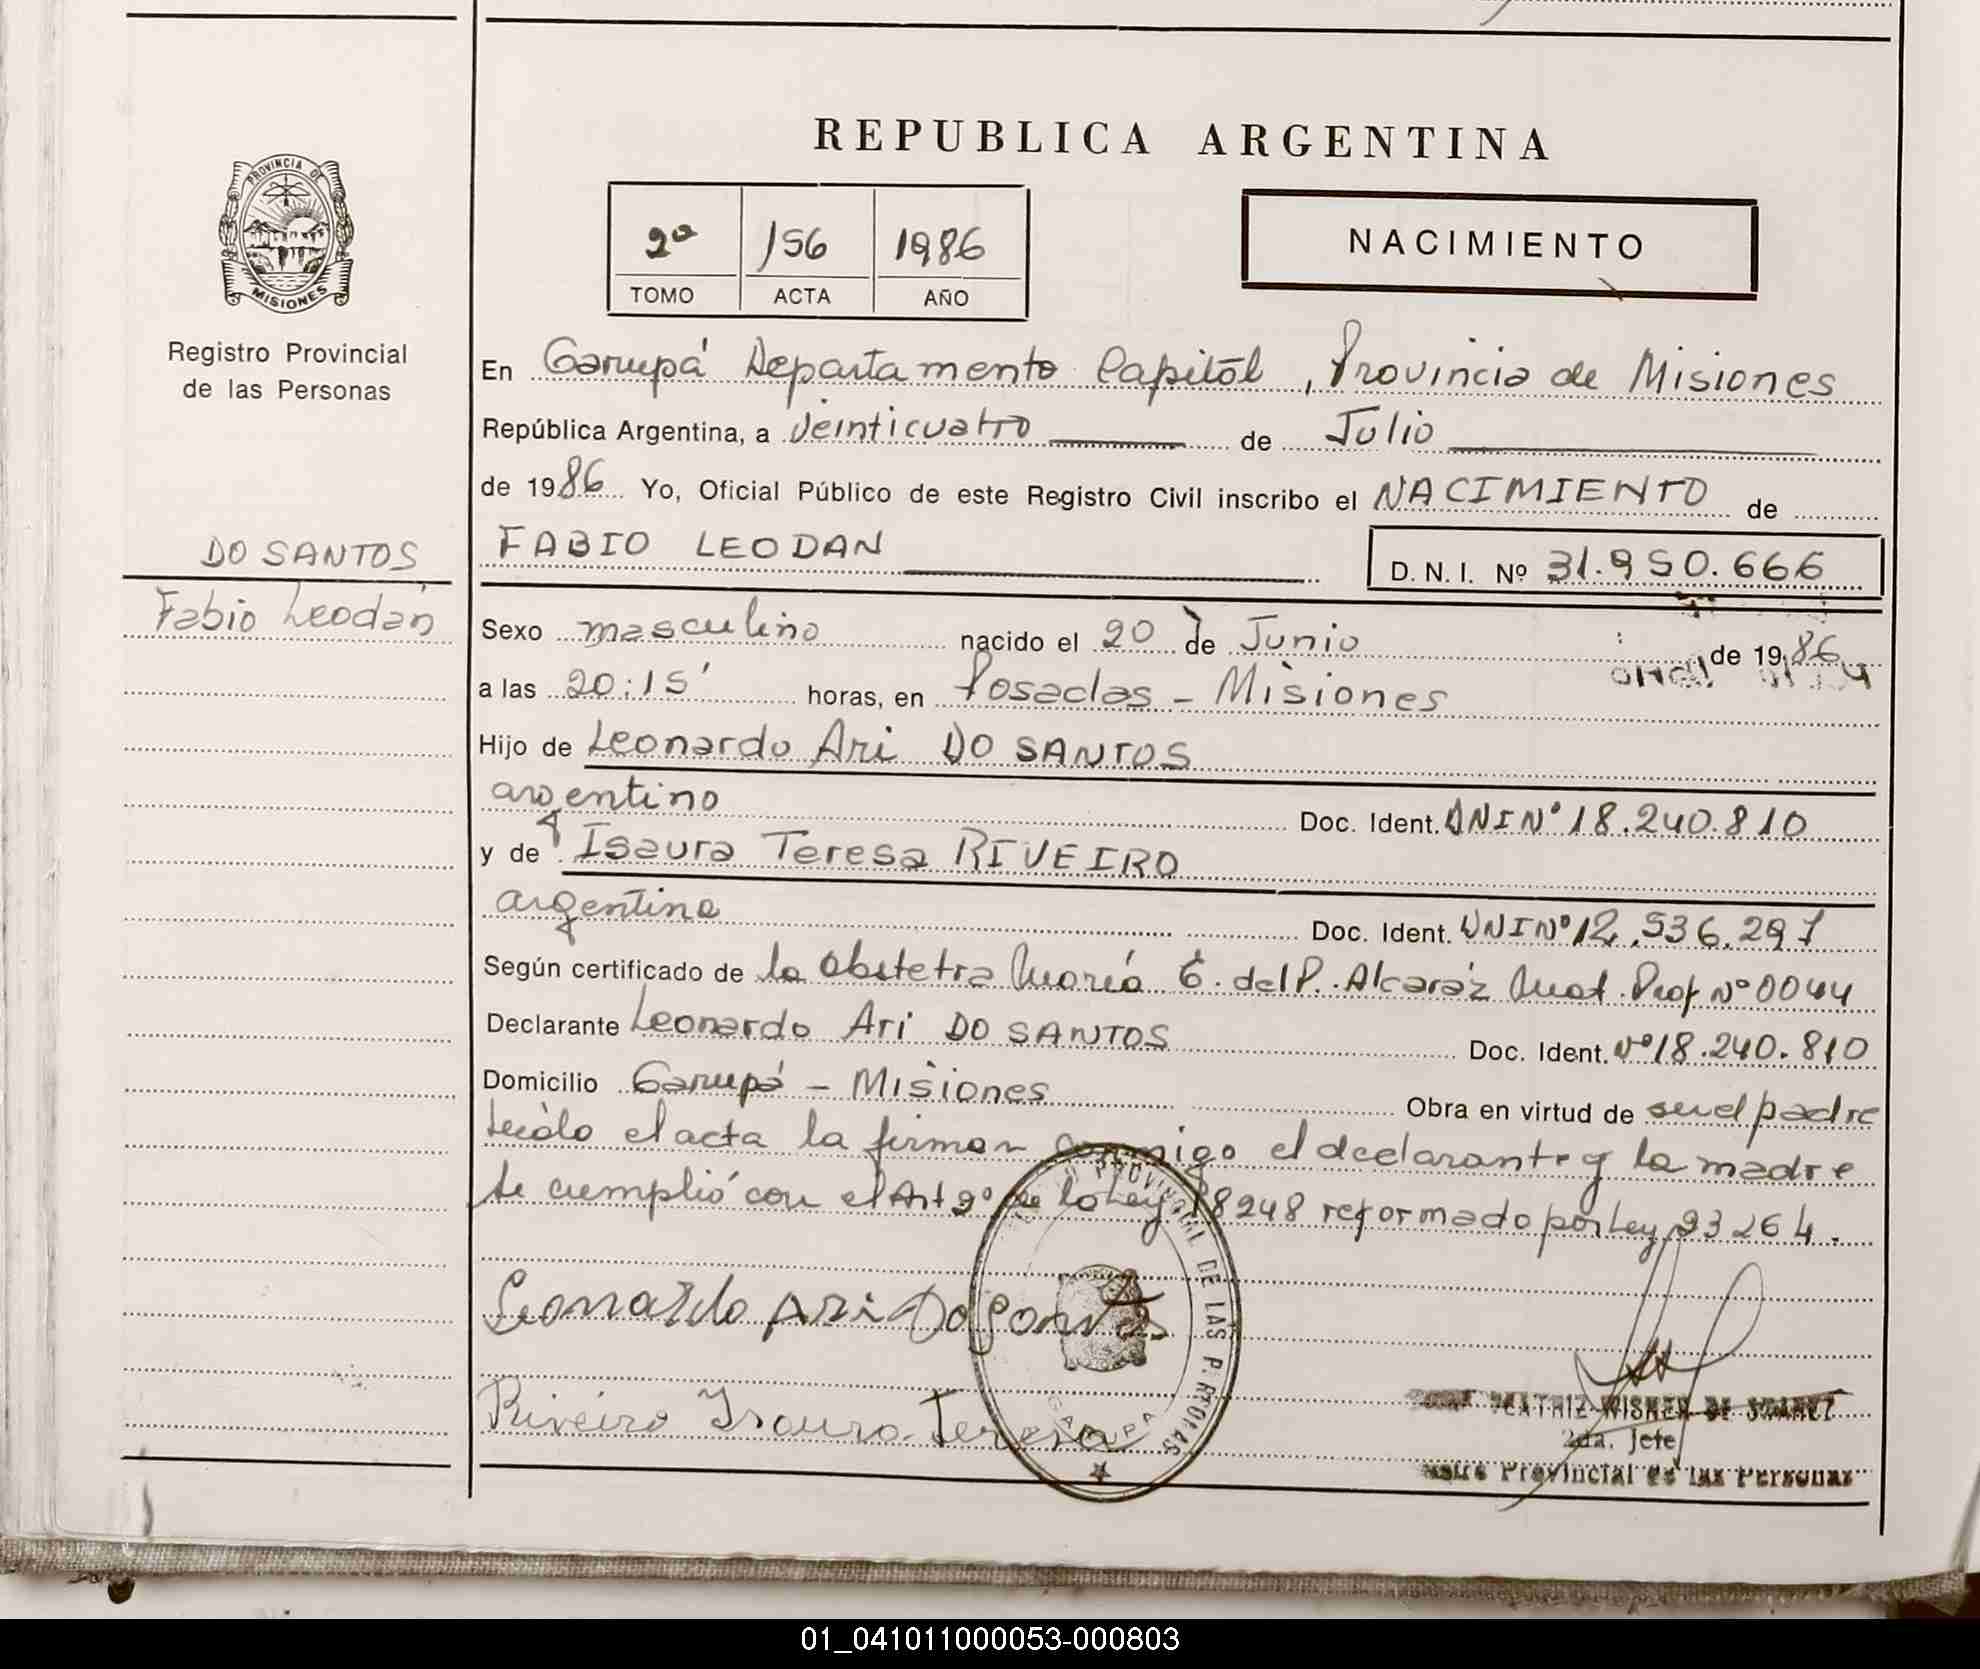 REPUBLICA ARGENTINA
PROVINCIA DE
MISIONES
Registro Provincial
de las Personas
2ª 156 1986
TOMO ACTA AÑO
NACIMIENTO
En Garupá Departamento Capital, Provincia de Misiones
República Argentina, a veinticuatro de Julio
de 1986 Yo, Oficial Público de este Registro Civil inscribo el NACIMIENTO de
DO SANTOS
Fabio Leodán
FABIO LEODAN
D.N.I. Nº 31.950.666
Sexo masculino nacido el 20 de Junio de 1986
a las 20:15' horas, en Posadas - Misiones
Hijo de Leonardo Ari DO SANTOS
argentino Doc. Ident. DNI Nº 18.240.810
y de Isaura Teresa RIVEIRO
argentina Doc. Ident. DNI Nº 12.536.297
Según certificado de la Obstetra María E. del P. Alcaráz Mat. Prof Nº 0044
Declarante Leonardo Ari DO SANTOS Doc. Ident. Nº 18.240.810
Domicilio Garupá - Misiones Obra en virtud de ser el padre
leído el acta la firman conmigo el declarante y la madre
se cumplió con el Art 2º de la Ley 18248 reformado por Ley 23264.
PROVINCIAL DE LAS PERSONAS
GARUPA
Leonardo Ari Do Santos
Riveiro Isaura Teresa
BEATRIZ WISNER DE SUAREZ
2da. Jefe
Provincial de las Personas
01_041011000053-000803